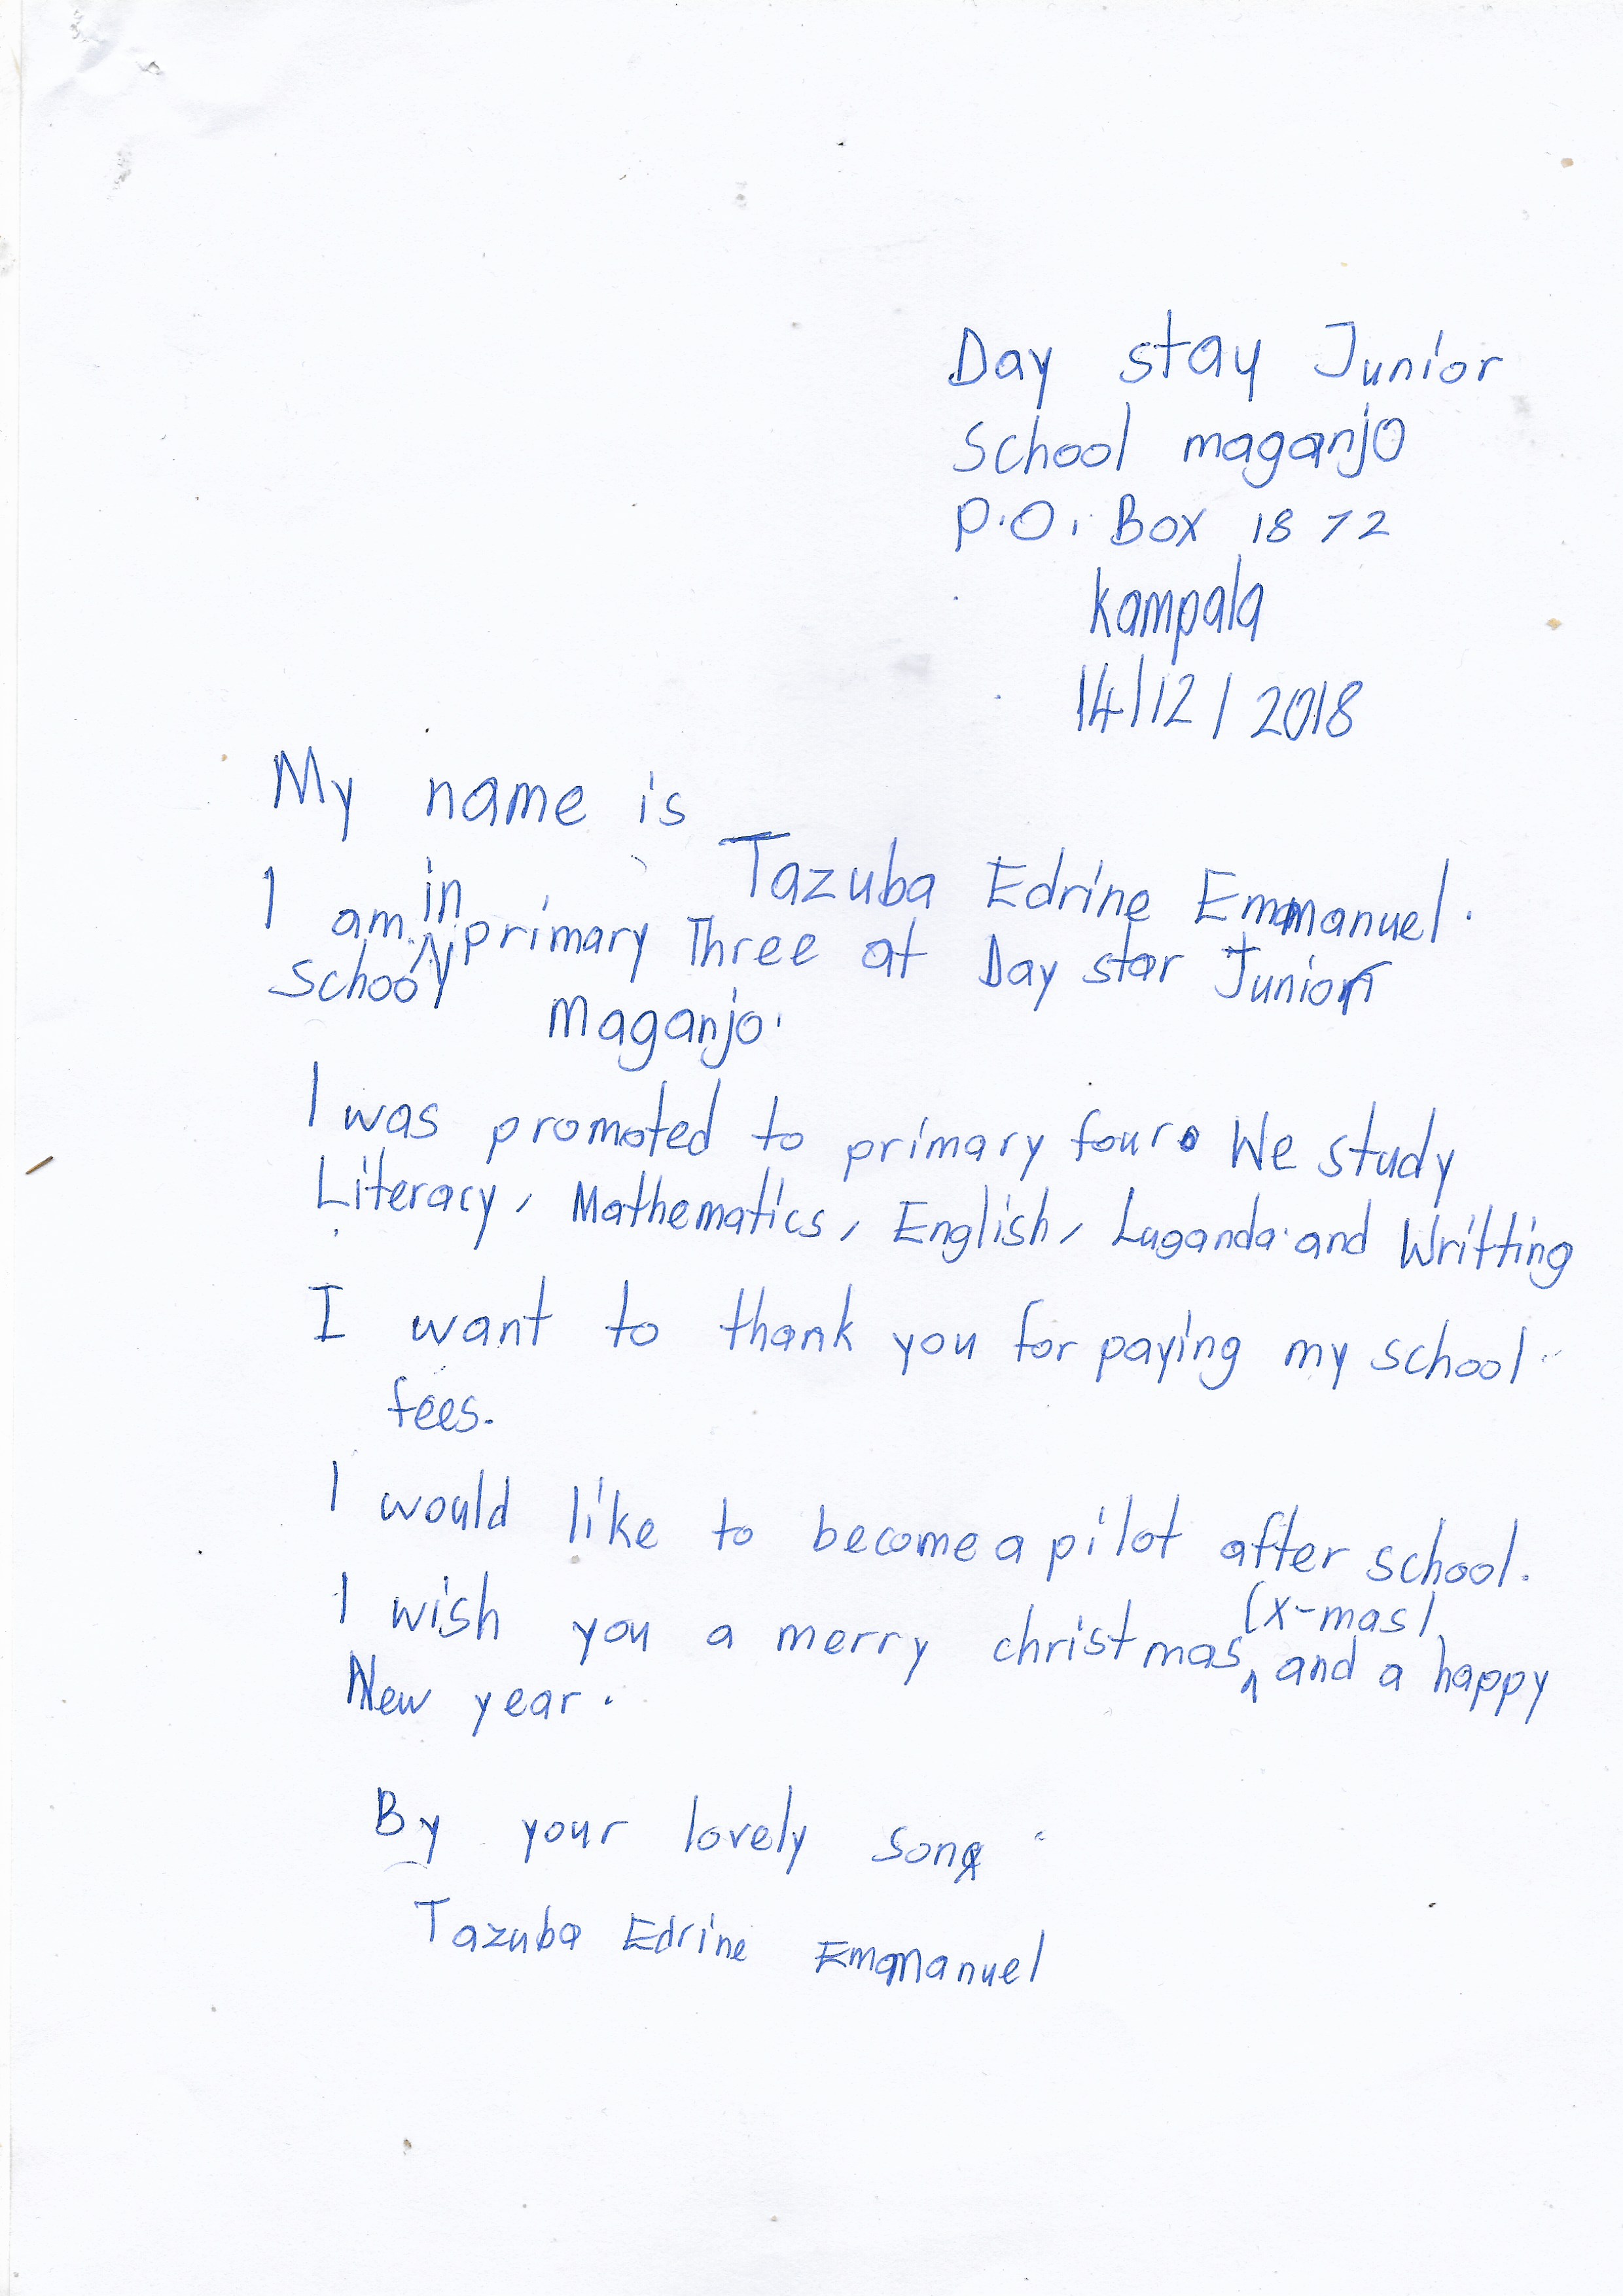 Day stay Junior
School maganjo
P.O. Box 1872
kampala
14/12/2018
My name is
Tazuba Edrine Emmanuel.
I am in primary Three at Day star Junior
School Maganjo.
I was promoted to primary four. We study
Literacy, Mathematics, English, Luganda and Writting
I want to thank you for paying my school
fees.
I would like to become a pilot after school.
I wish you a merry christmas (x-mas) and a happy
New year.
By your lovely son
Tazuba Edrine Emmanuel